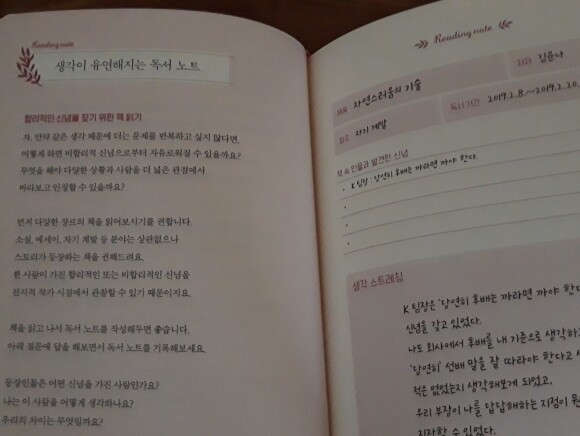 Reading note
생각이 유연해지는 독서 노트
합리적인 신념을 찾기 위한 책 읽기
자, 만약 같은 생각 때문에 더는 문제를 반복하고 싶지 않다면,
어떻게 하면 비합리적 신념으로부터 자유로워질 수 있을까요?
무엇을 해야 다양한 상황과 사람을 더 넓은 관점에서
바라보고 인정할 수 있을까요?
먼저 다양한 장르의 책을 읽어보시기를 권합니다.
소설, 에세이, 자기 계발 등 분야는 상관없으나
스토리가 등장하는 책을 권해드려요.
한 사람이 가진 합리적인 또는 비합리적인 신념을
전지적 작가 시점에서 관찰할 수 있기 때문이지요.
책을 읽고 나서 독서 노트를 작성해두면 좋습니다.
아래 질문에 답을 해보면서 독서 노트를 기록해보세요.
등장인물은 어떤 신념을 가진 사람인가요?
나는 이 사람을 어떻게 생각하나요?
우리의 차이는 무엇일까요?
Reading note
제목 자연스러움의 기술
저자 김윤나
장르 자기 계발
독서 기간 2019.2.8~2019.2.20.
책 속 인물과 발견한 신념
K 팀장 : 당연히 후배는 까라면 까야 한다.
생각 스트레칭
K 팀장은 '당연히 후배는 까라면 까야 한다
신념을 갖고 있었다.
나도 회사에서 후배를 내 기준으로 생각하고
'당연히' 선배 말을 잘 따라야 한다고
적은 없었는지 생각해보게 되었고,
우리 부장이 나를 답답해하는 지점이
지작할 수 있었다.